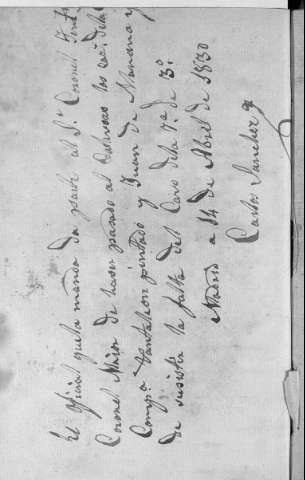 El oficial que la manda da parte al Sr. Coronel
Coronel Mayor de haver pasado al Calavozo los
Compa. Pantaleon pintado y Juan de Mariana y
de susistir la falta del Cavo de la 7a. de 3o.
Madrid a 14 de Abril de 1830
Carlos Sanchez